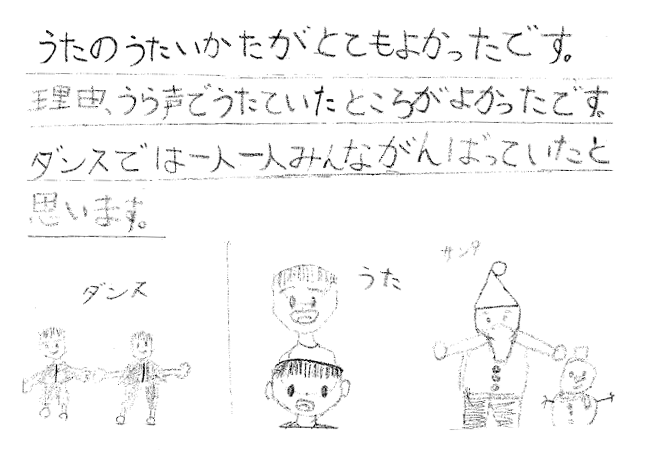 うたのうたいかたがとてもよかったです。
理由、うら声でうたていたところがよかったです。
ダンスでは一人一人みんながんばっていたと
思います。
ダンス
うた
サンタ